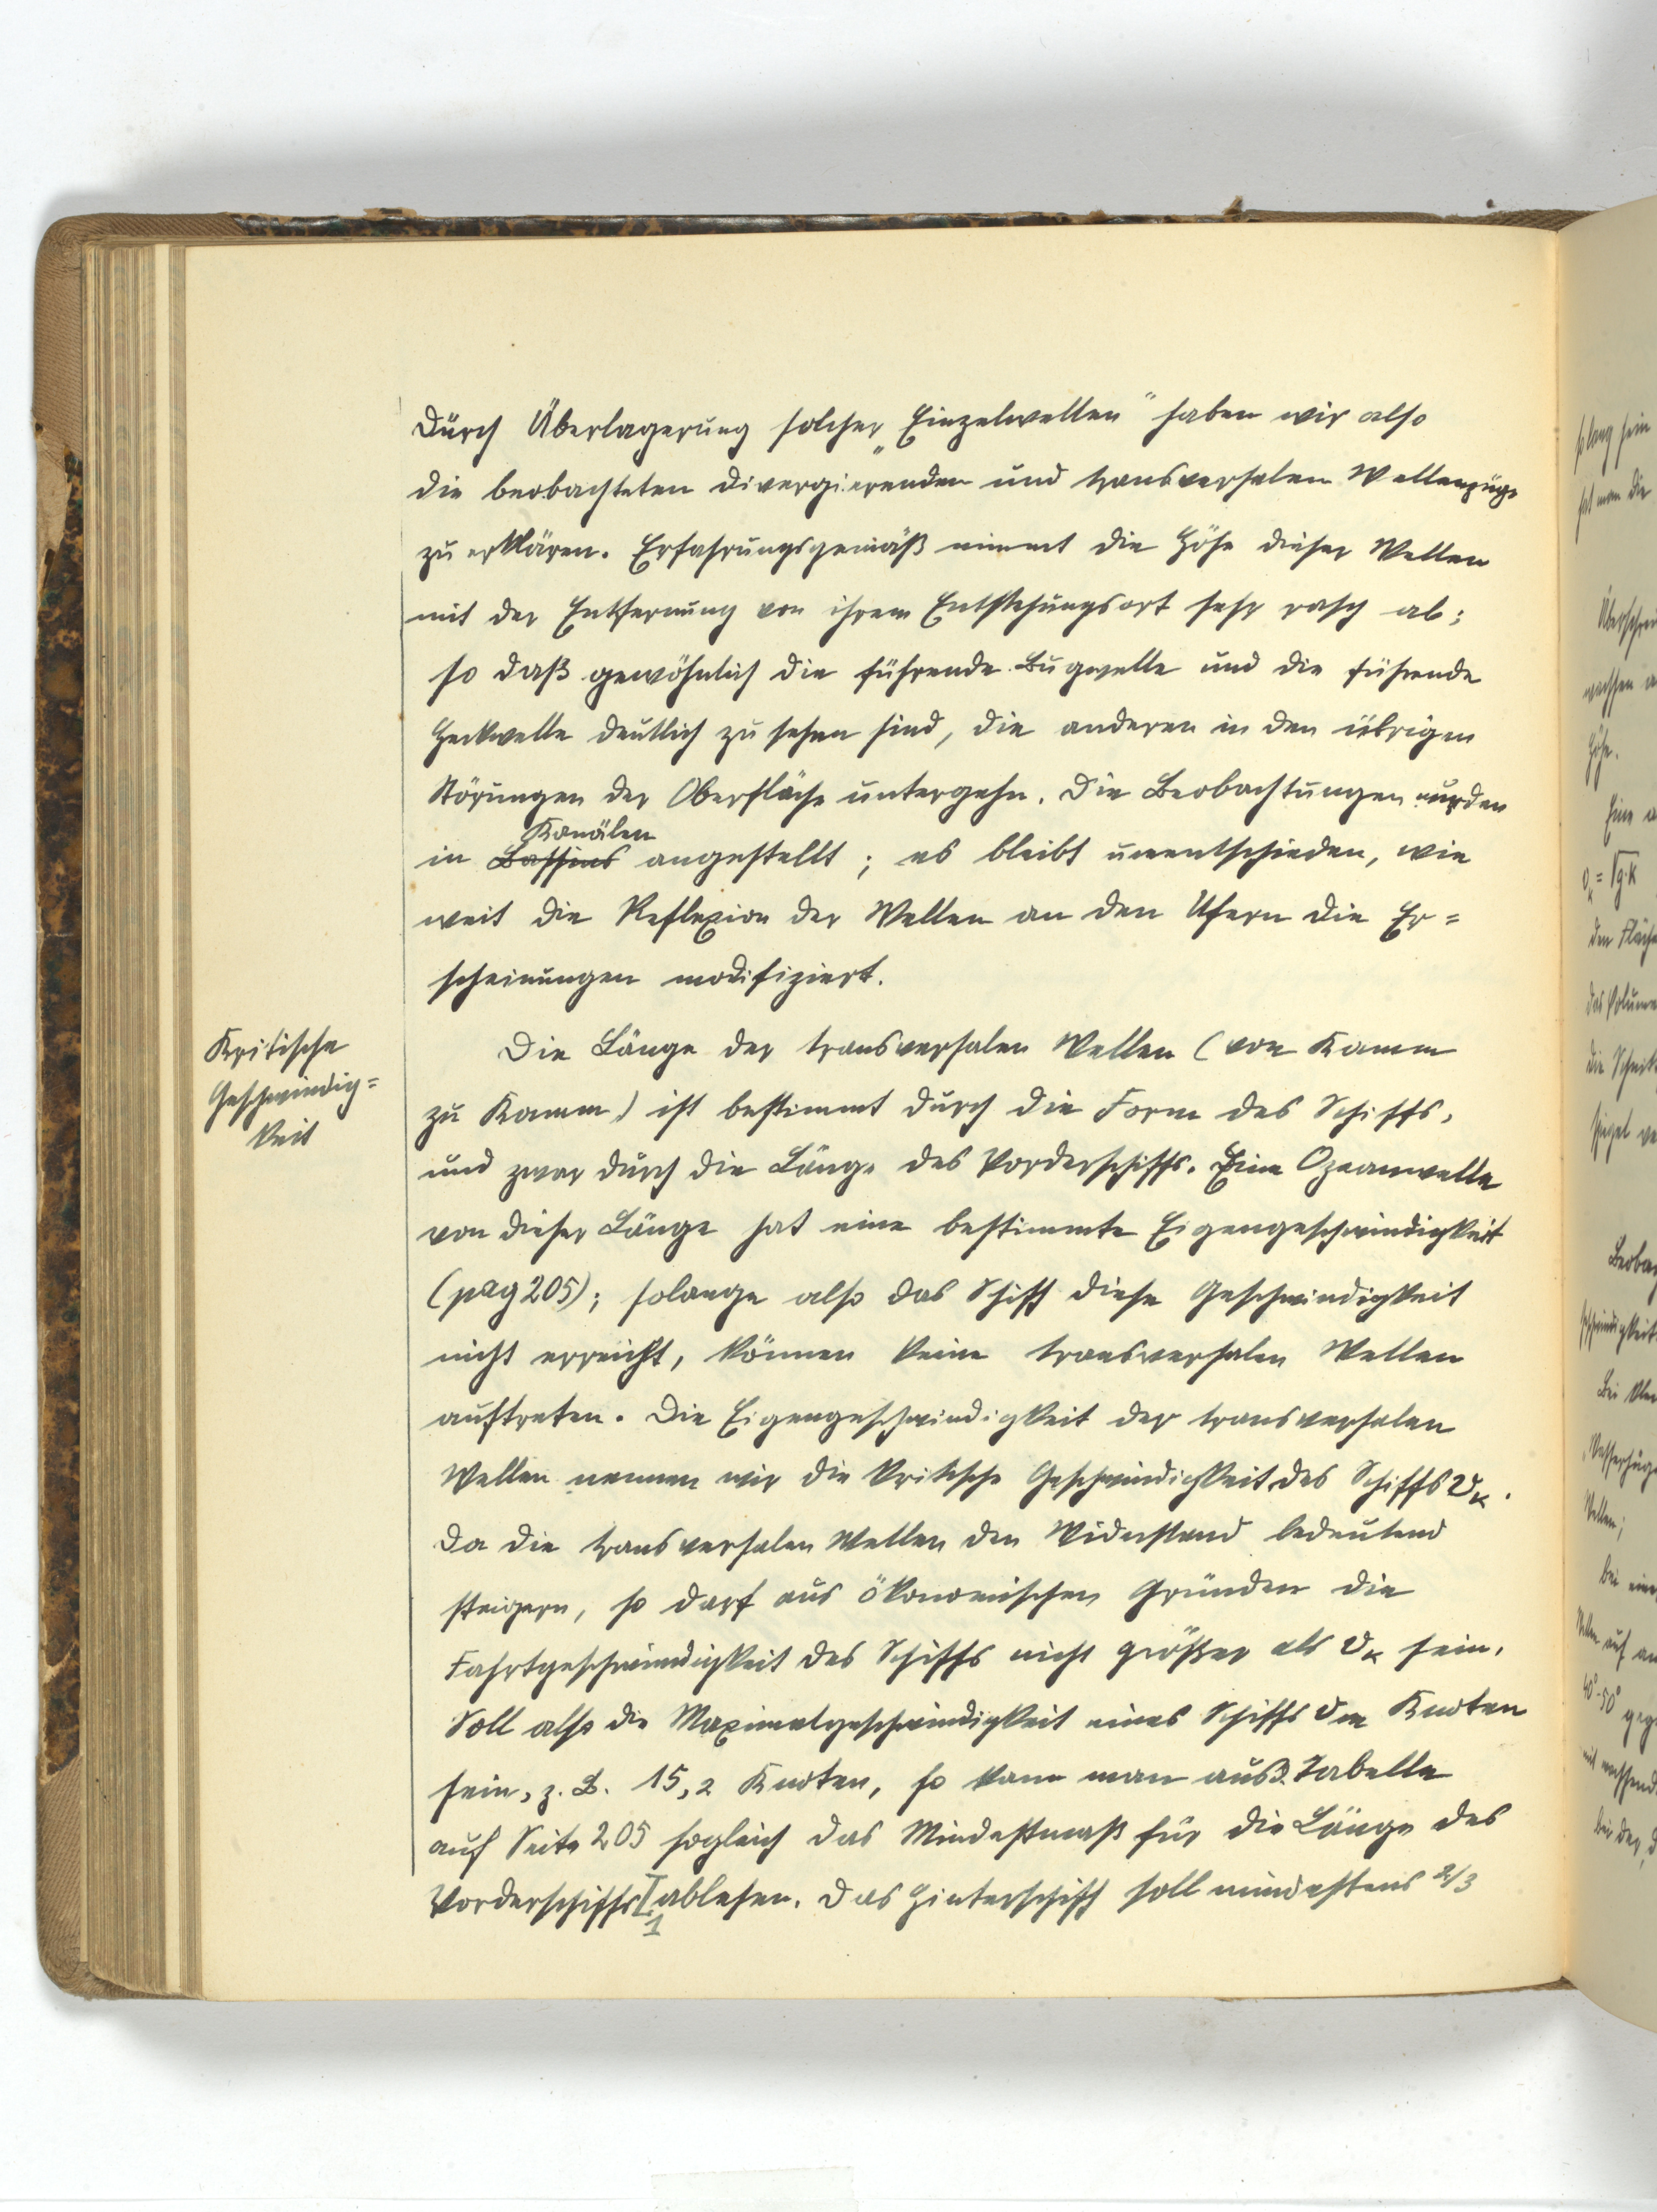 Durch Überlagerung solcher „Einzelwellen" haben wir also
die beobachteten divergierenden und transversalen Wellenzüge
zu erklären. Erfahrungsgemäß nimmt die Höhe dieser Wellen
mit der Entfernung von ihrem Entstehungsort sehr rasch ab;
so daß gewöhnlich die führende Bugwelle und die führende
Heckwelle deutlich zu sehen sind, die anderen in den übrigen
Störungen der Oberfläche untergehn. Die Beobachtungen wurden
Kanälen
in Bassins angestellt; es bleibt unentschieden, wie
weit die Reflexion der Wellen an den Ufern die Er=
scheinungen modifiziert.
Kritische
Geschwindig=
keit
Die Länge der transversalen Wellen (von Kamm
zu Kamm) ist bestimmt durch die Form des Schiffs,
und zwar durch die Länge des Vorderschiffs. Eine Ozeanwelle
von dieser Länge hat eine bestimmte Eigengeschwindigkeit
(pag 205); solange also das Schiff diese Geschwindigkeit
nicht erreicht, können keine transversalen Wellen
auftreten. Die Eigengeschwindigkeit der transversalen
Wellen nennen wir die kritische Geschwindigkeit des Schiffs vₖ.
Da die transversalen Wellen den Widerstand bedeutend
steigern, so darf aus ökonomischen Gründen die
Fahrtgeschwindigkeit des Schiffs nicht größer als vₖ sein.
Soll also die Maximalgeschwindigkeit eines Schiffs vm Knoten
sein, z. B. 15,2 Knoten, so kann man aus d. Tabelle
auf Seite 205 sogleich das Mindestmaß für die Länge des
Vorderschiffs ablesen. Das Hinterschiff soll mindestens 2/3
1